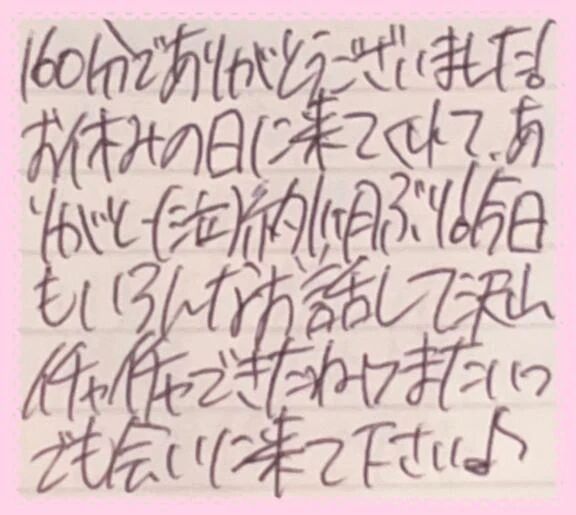 160分でありがとうございました!
お休みの日に来てくれて、あ
りがとー(泣)約1ヶ月ぶり!今日
もいろんなお話して沢山
イチャイチャできたねーまたいつ
でも会いに来て下さい♪